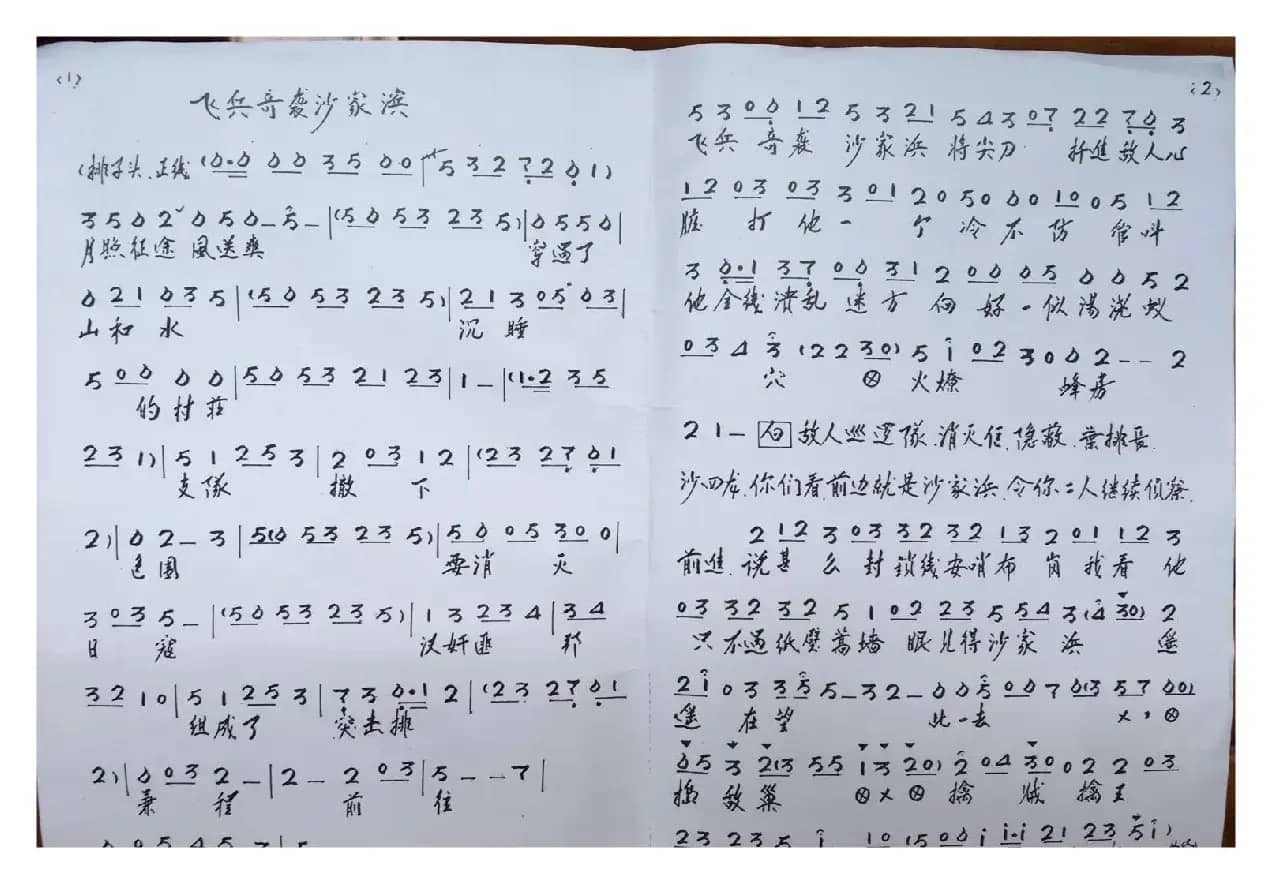 (1)
飞兵奇袭沙家浜
(排子头.正线 (0·0 00 35 00 | 5 32 72 01)
3502 050-5-|(50 53 23 5)|0550|
月照征途 風送爽 穿过了
0 21 03 5|(50 53 23 5)|21 3 05 03|
山和水 沉睡
5 00 00|50 53 21 23|1-|(1·2 35
的村莊
23 1)|5 1 25 3|2 03 1 2|(23 27 01
支隊 撒下
2)|02-3|5(0 53 23 5)|50 05 300|
包围 要消灭
3 03 5-|(50 53 23 5)|1 3 23 4|34
日寇 汉奸匪邦
32 10|5 1 25 3|7 3 0·1 2|(23 27 01
组成了 突击排
2)|0 03 2-|2- 2 03|5--7|
兼程 前往
(2)
5 3 00 12 5 3 21 5 4 3 07 22 70 3
飞兵奇袭 沙家浜 将尖刀 扦進敌人心
12 03 03 3 01 2 0 5 0 0 0 10 0 5 12
脏 打他一个冷不防 管叫
3 0·1 37 00 31 2 00 05 0 0 5 2
他全线溃乱迷方向好一似湯浇蚁
03 4 3 (22 30) 5 i 02 3 0 0 2-- 2
穴 ⊗ 火燎 蜂房
2 1- 白 敌人巡逻隊.消灭
沙四龙.你们看.前边就是沙家浜.令你二人继续侦察
2 12 3 03 32 32 13 2 01 12 3
前進.说甚么封锁线安哨布崗我看他
03 32 32 5 1 02 23 5 54 3 (4 30) 2
只不过纸壁蒿墙 眼见得沙家浜 遥
2i 03 35 5-32-0 0 5 0 0 7 0(3 57 00)
遥在望 此一去 ×,⊗
05 3 2(3 55 i3 20) 2 04 300 2 2 03
捣敌巢 ⊗×⊗ 擒贼擒王
23 23 5 i 10 (5 00 i i·i 21 23 5i)